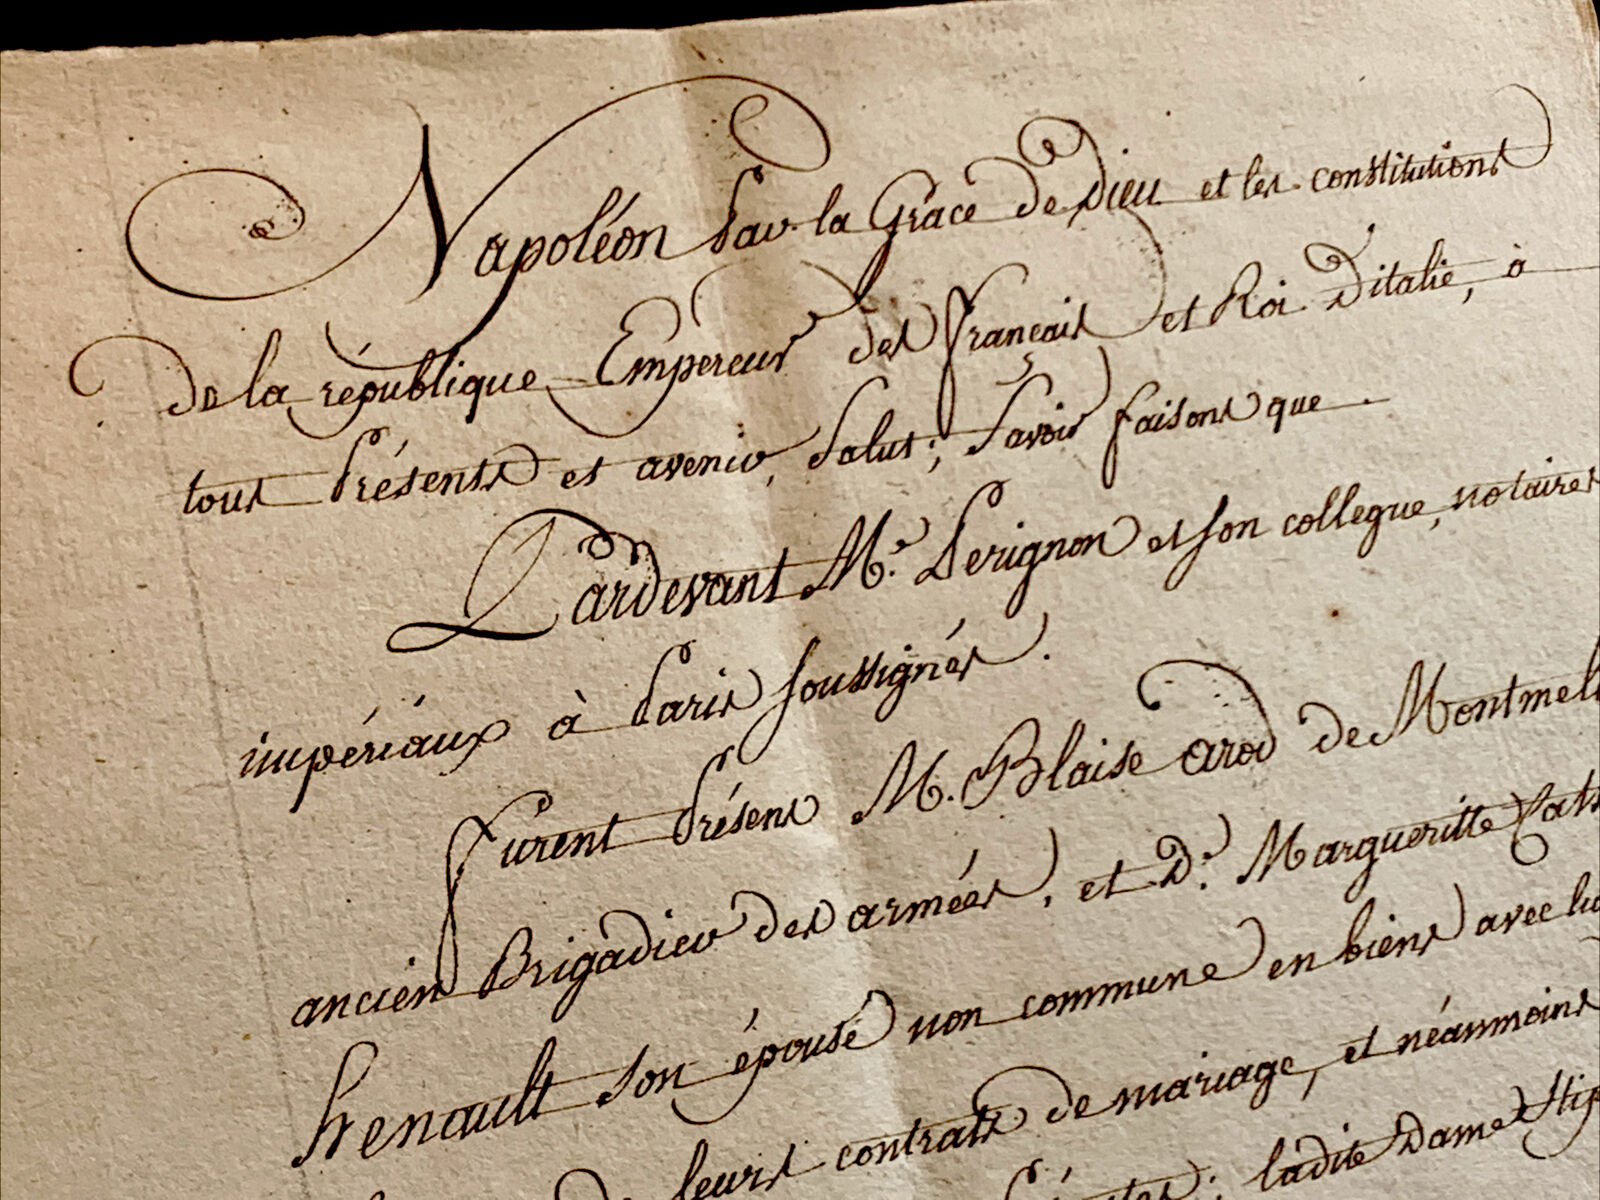 Napoléon par la Grace de Dieu et les constitutions
de la république Empereur des français et Roi d'italie, à
tous présents et avenir, Salut; Savoir faisons que
Pardevant Me. Perignon et son collegue, notaires
impériaux à Paris soussignés.
furent présens M. Blaise arod de Montmel
ancien Brigadier des armées, et De. Margueritte Cath
henault son épouse non commune en biens avec lui
leurs contrats de mariage, et néanmoins
ladite Dame Stip